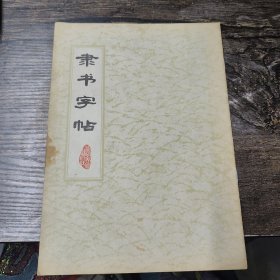 隶书字帖